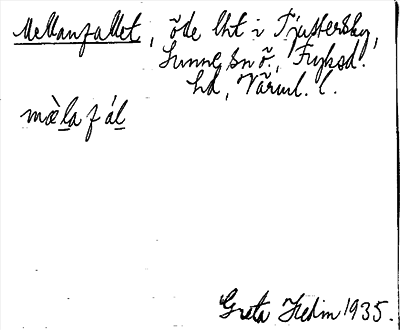 Mellanfallet, öde lht i Tjustersby,
Sunne sn ö., Fryksd.
hd, Värml. l.
mæ̀lafál
Greta Hedin 1935.